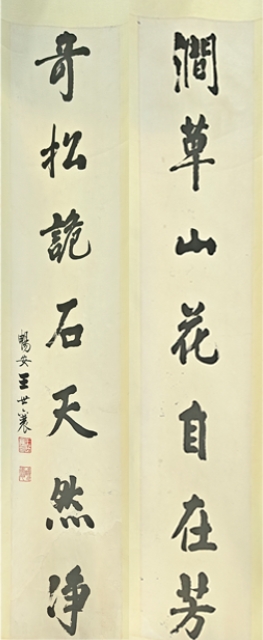 澗草山花自在芳
奇松詭石天然净
暢安王世襄